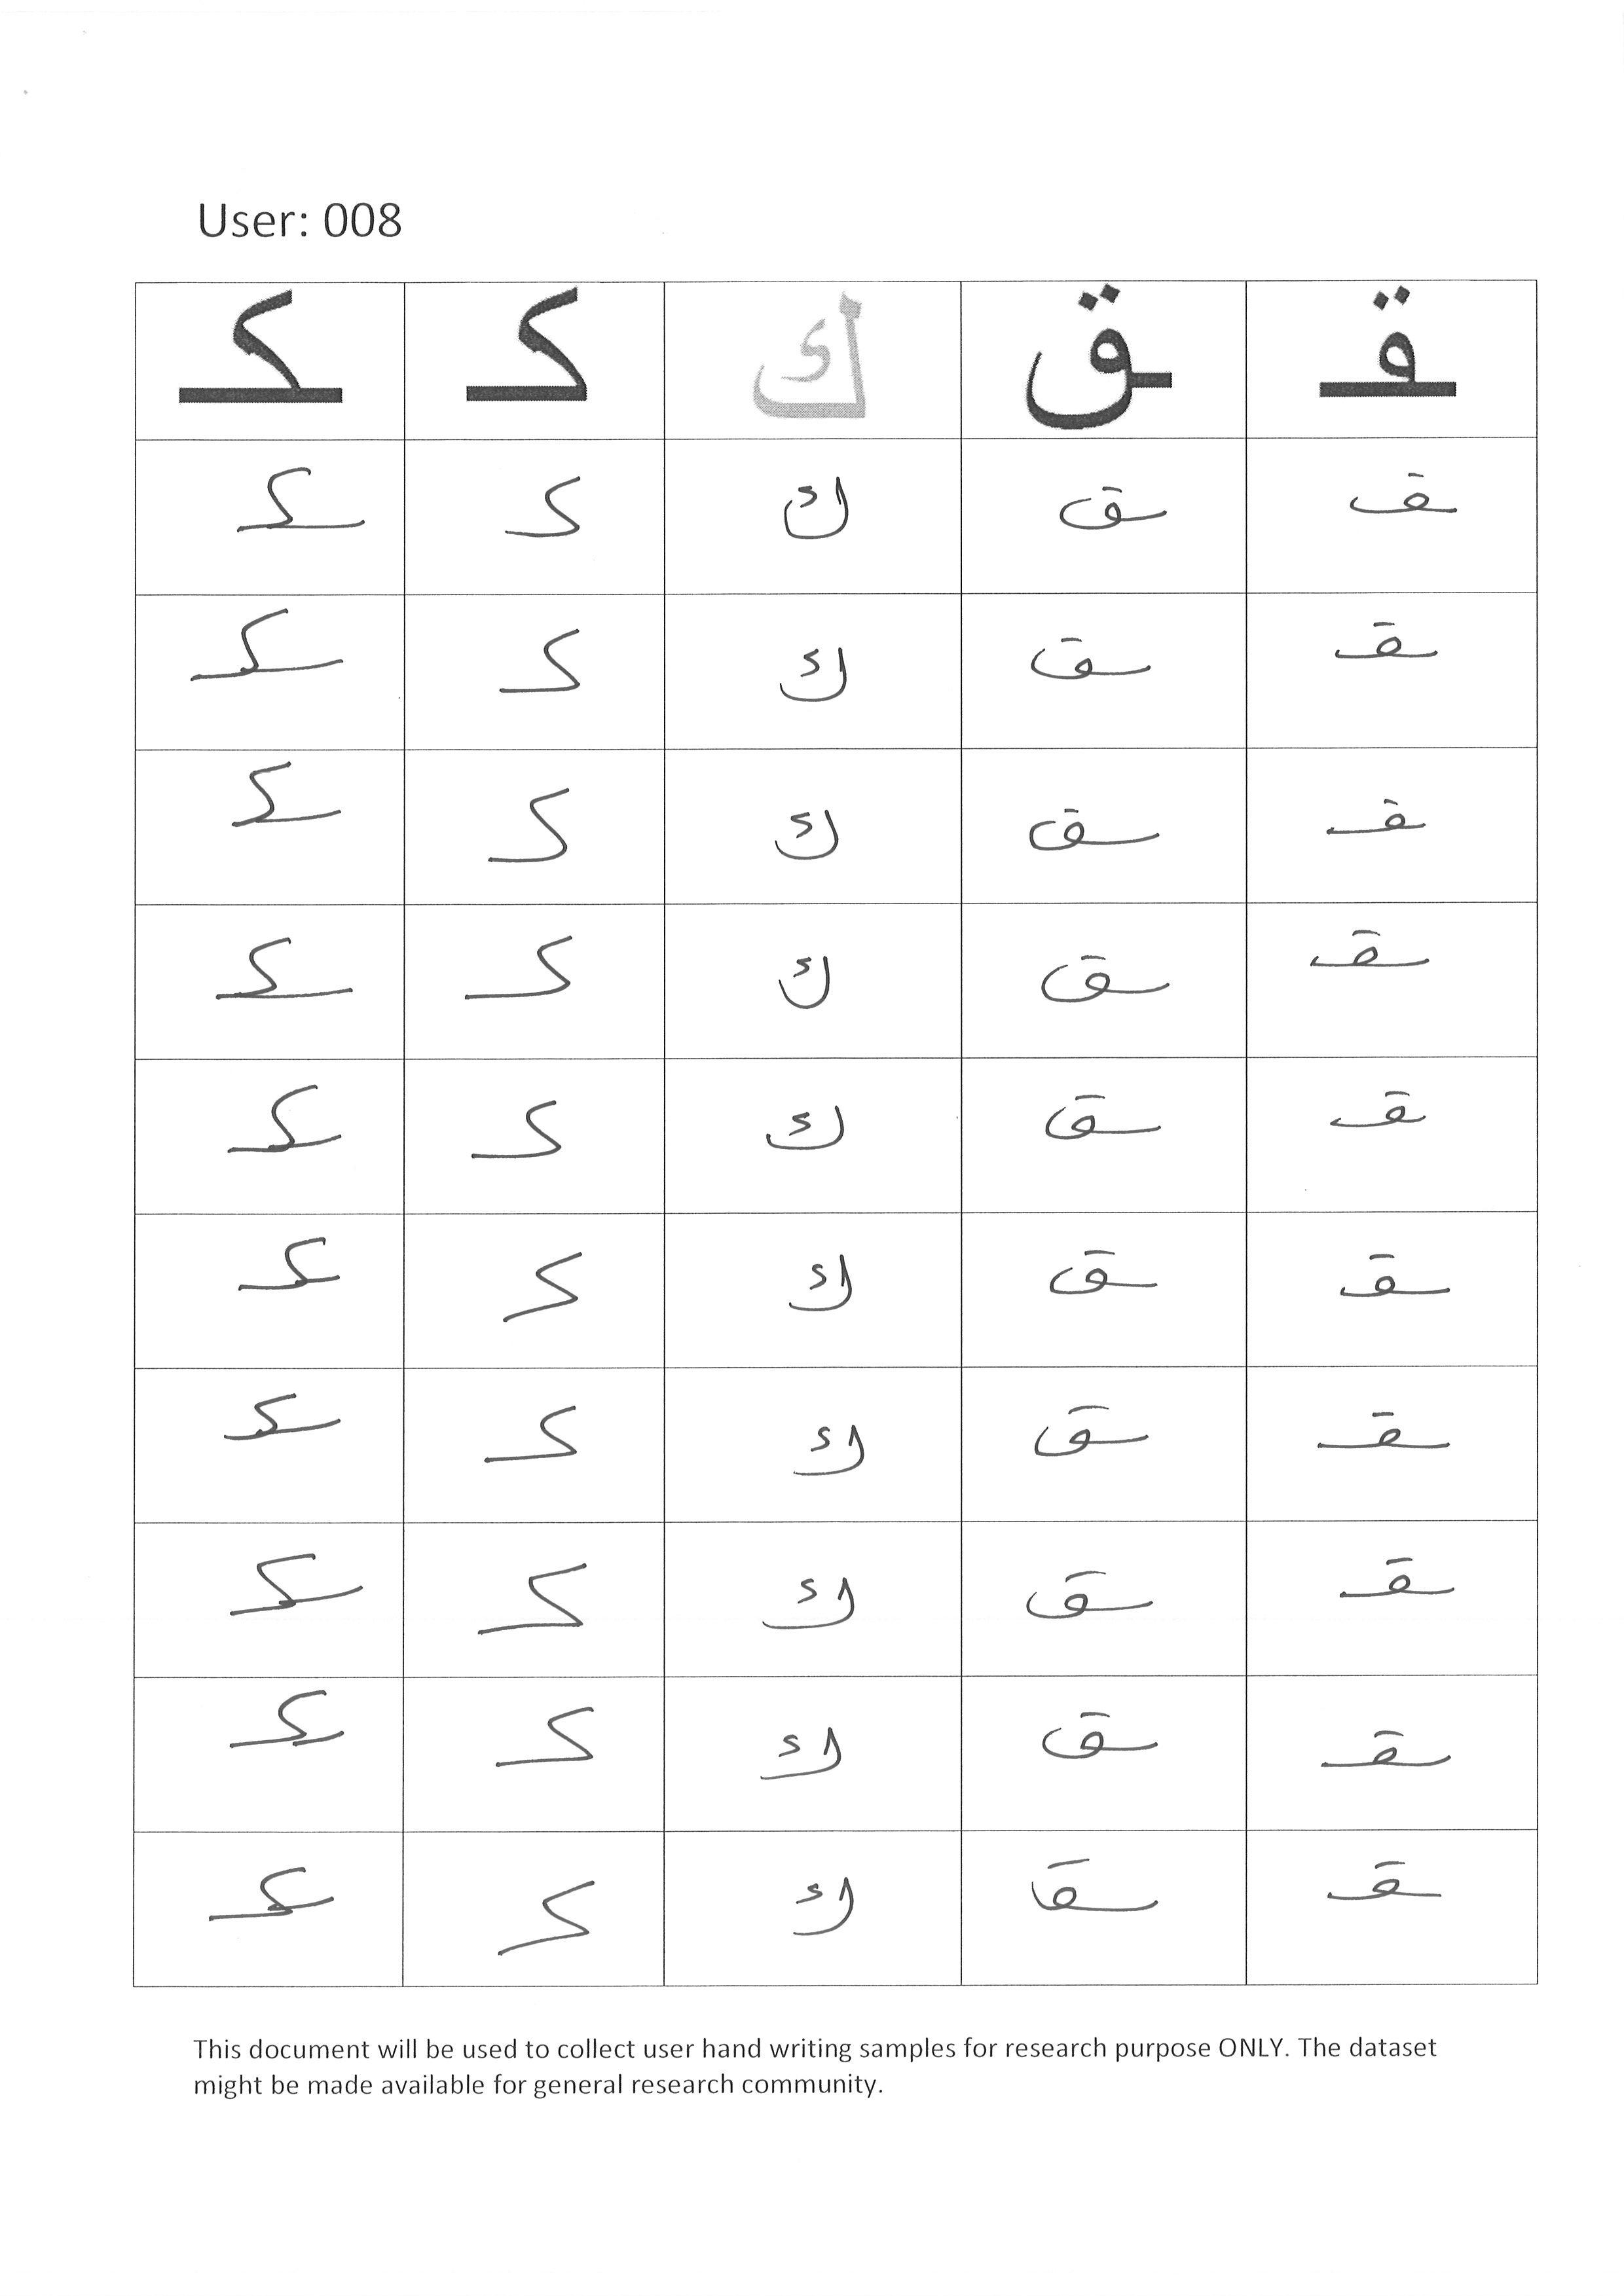 User: 008
ـقـ ـق ك كـ ـكـ
ـقـ ـق ك كـ ـكـ
ـقـ ـق ك كـ ـكـ
ـقـ ـق ك كـ ـكـ
ـقـ ـق ك كـ ـكـ
ـقـ ـق ك كـ ـكـ
ـقـ ـق ك كـ ـكـ
ـقـ ـق ك كـ ـكـ
ـقـ ـق ك كـ ـكـ
ـقـ ـق ك كـ ـكـ
ـقـ ـق ك كـ ـكـ
This document will be used to collect user hand writing samples for research purpose ONLY. The dataset
might be made available for general research community.